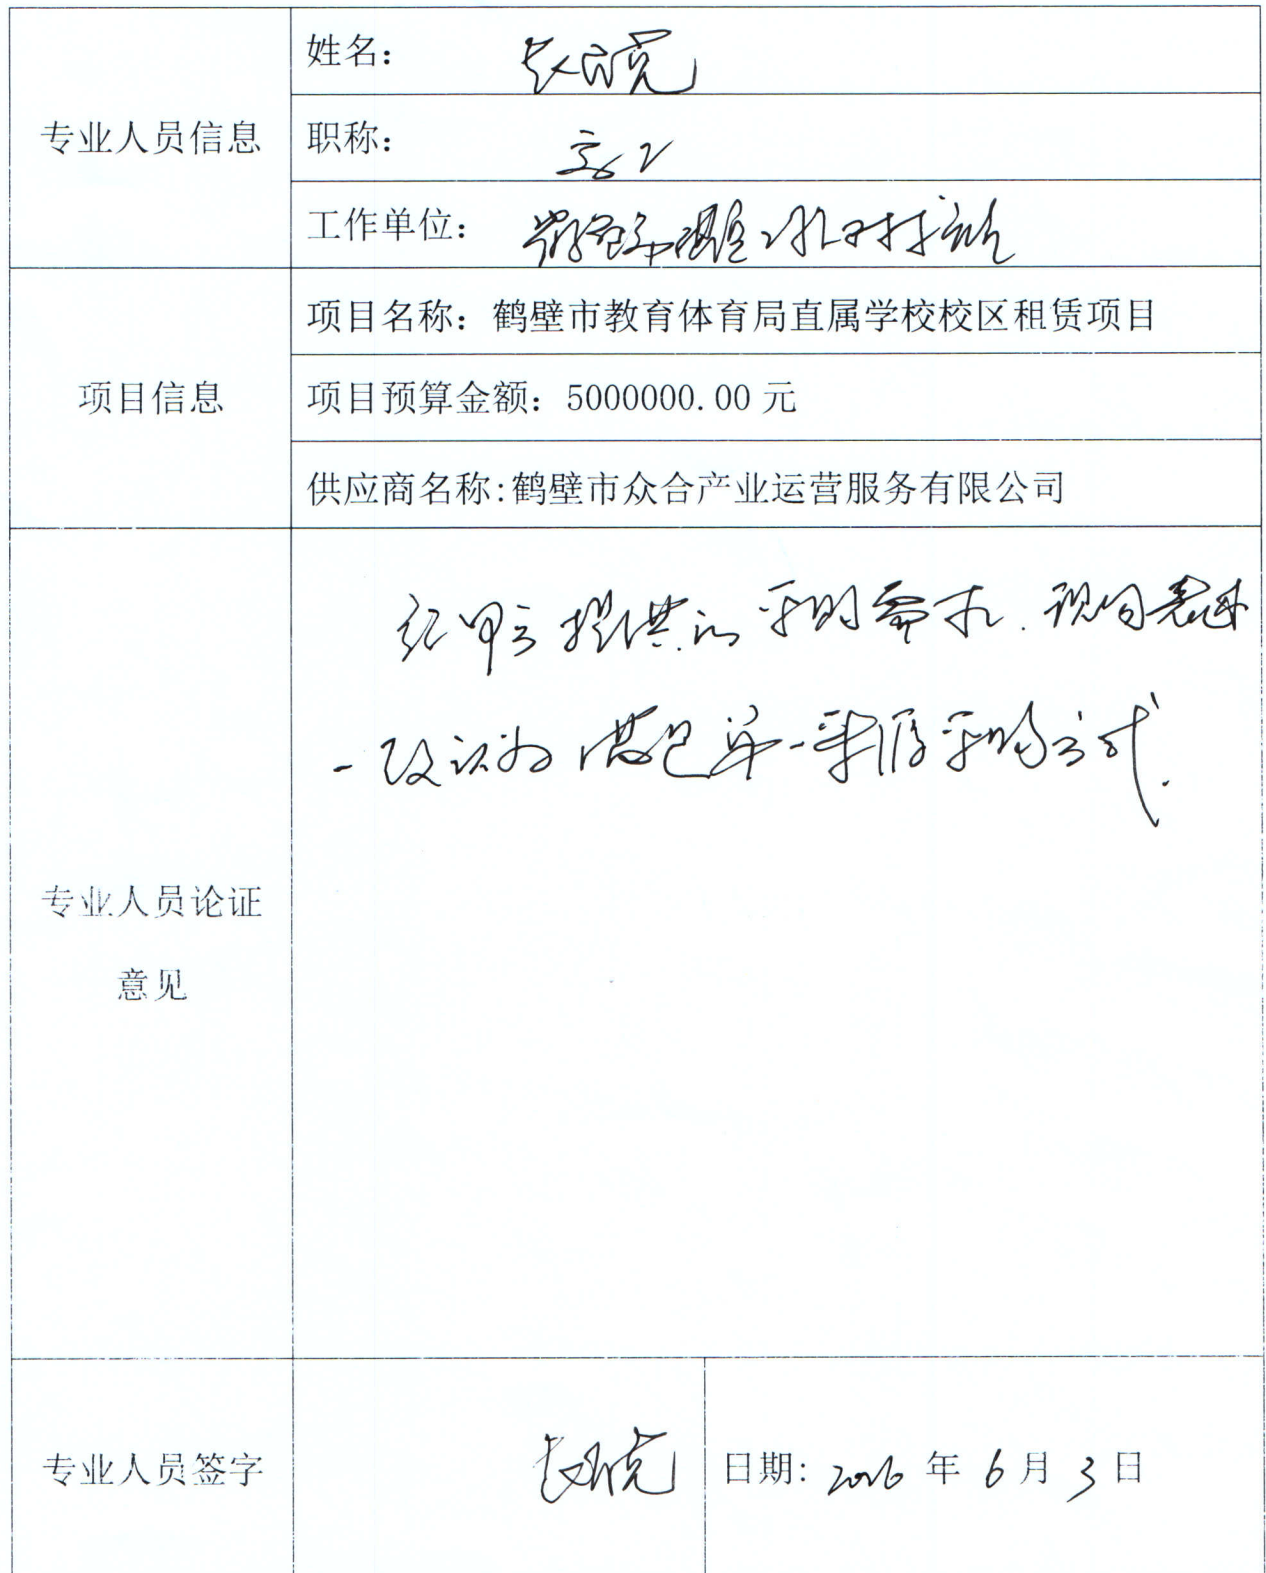 专业人员信息
姓名：
职称：高工
工作单位：
项目信息
项目名称：鹤壁市教育体育局直属学校校区租赁项目
项目预算金额：5000000.00 元
供应商名称:鹤壁市众合产业运营服务有限公司
专业人员论证
意见
提供的采购需求
一致认为满足单一来源采购方式.
专业人员签字
日期: 2026 年 6 月 3 日